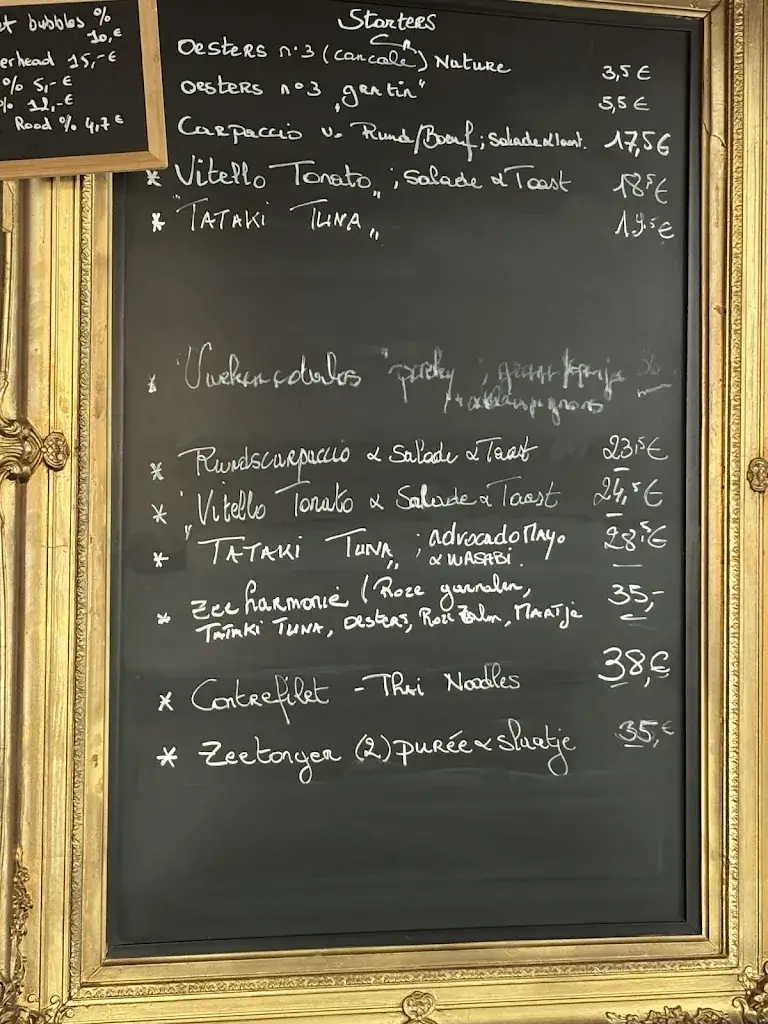 bubbles %
10,€
erhead 15,-€
% 5,-€
% 12,-€
Rood % 4,7€
Starters
Oesters n°3 (cancale) Nature 3,5€
Oesters n°3 "gratin" 5,5€
Carpaccio v. Rund/Boeuf; Salade & Toast. 17,5€
* "Vitello Tonato"; Salade & Toast 18,5€
* "TATAKI TUNA" 19,5€
*
* Rundscarpaccio & Salade & Toast 23,5€
* "Vitello Tonato & Salade & Toast 24,5€
* "TATAKI TUNA"; advocado Mayo 28,5€
& WASABI.
* Zeeharmonie (Roze garnalen, 35,-
TATAKI TUNA, OESTERS, Roze Zalm, MAATJE
* Contrefilet - Thai Noodles 38,€
* Zeetongen (2) purée & slaatje 35,€